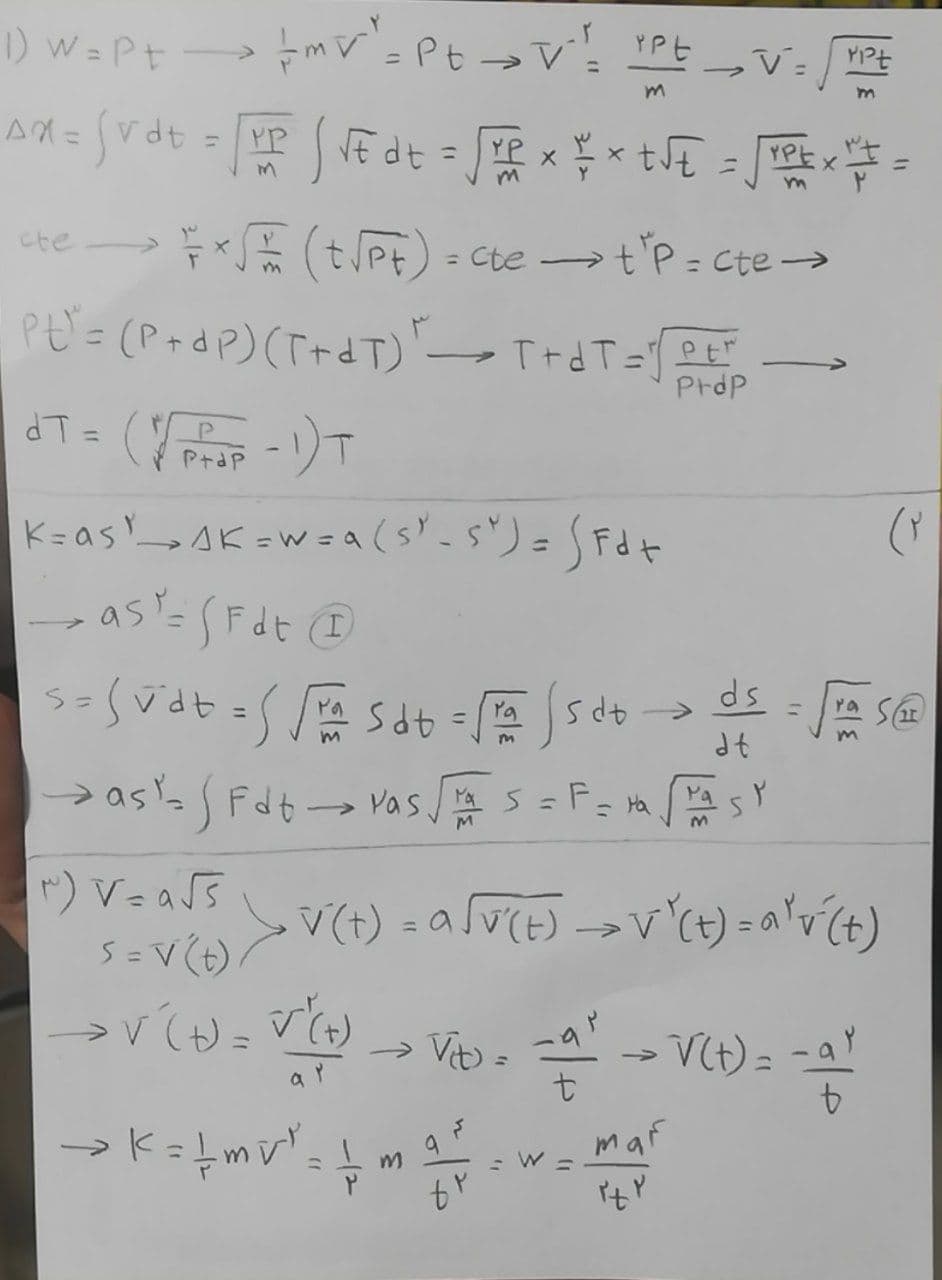 1) W = Pt → ۱/۲ m V^۲ = Pt → V^۲ = ۲Pt/m → V = √(۲Pt/m)
Δx = ∫ V dt = √(۲P/m) ∫ √t dt = √(۲P/m) × ۳/۲ × t√t = √(۲Pt/m) × ۳t/۲ =
cte → ۳/۲ × √(۲/m) (t√Pt) = cte → t^۳P = cte →
Pt^۳ = (P + dP)(T + dT)^۳ → T + dT = ∛(Pt^۳/(P+dP)) →
dT = (∛(P/(P+dP)) - 1)T
۲) K = as^۲ → ΔK = W = a(s^۲ - s^۲) = ∫ Fdt
→ as^۲ = ∫ Fdt Ⓘ
s = ∫ V dt = ∫ √(۲a/m) s dt = √(۲a/m) ∫ s dt → ds/dt = √(۲a/m) s Ⅱ
→ as^۲ = ∫ Fdt → ۲as √(۲a/m) s = F = ۲a √(۲a/m) s^۲
۳) V = a√s
s = V′(t)
V(t) = a√(V′(t)) → V^۲(t) = a^۲ V′(t)
→ V′(t) = V^۲(t)/a^۲ → V(t) = -a^۲/t → V(t) = -a^۲/t
→ K = ۱/۲ m V^۲ = ۱/۲ m a^۴/t^۲ = W = ma^۴/۲t^۲